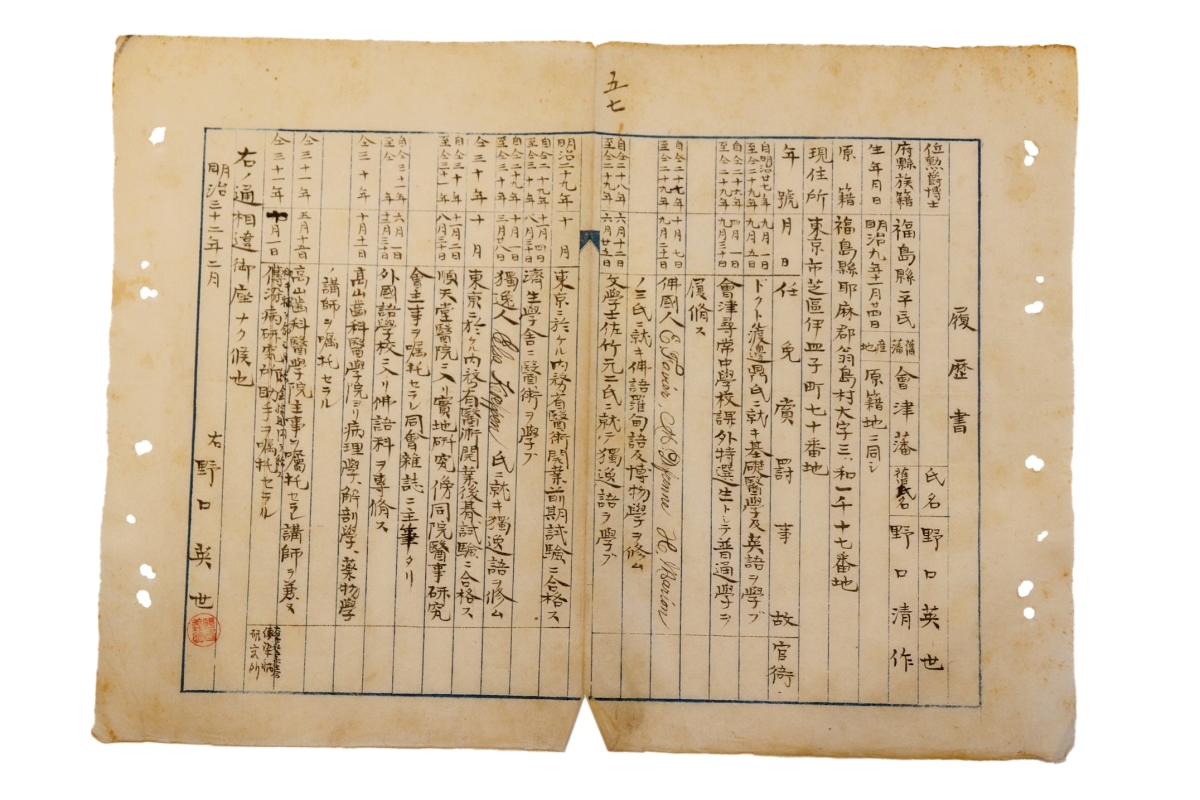 五七
履歴書
位勲爵博士 氏名 野口英世
府縣族籍 福島縣平民 舊藩 會津藩 舊氏名 野口清作
生年月日 明治九年十一月廿四日 産地 原籍地ニ同シ
原籍 福島縣耶麻郡翁島村大字三ッ和一千十七番地
現住所 東京市芝區伊皿子町七十番地
年號月日 任免賞罰事故 官衙
自明治廿七年九月一日 至仝二十九年九月五日 ドクトル渡邊鼎氏ニ就キ基礎醫學及英語ヲ學ブ
自仝二十六年四月一日 至仝二十九年九月三十日 會津尋常中學校課外特選生トシテ普通學ヲ
履脩ス
自仝二十七年十月七日 至仝二十九年九月二十日 佛國人
ノ三氏ニ就キ佛語羅甸語及博物學ヲ修ム
自仝二十八年六月十二日 至仝二十九年六月廿五日 文學士佐竹元二氏ニ就テ獨逸語ヲ學ブ
明治二十九年十月 東京ニ於ケル内務省醫術開業前期試驗ニ合格ス
自仝二十九年十一月四日 至仝三十年八月三十日 濟生學舎ニ醫術ヲ學ブ
自仝二十九年十一月一日 至仝三十年三月廿八日 獨逸人 氏ニ就キ獨逸語ヲ修ム
仝三十年十月 東京ニ於ケル内務省醫術開業後期試驗ニ合格ス
自仝三十年十一月二日 至仝三十一年八月三十日 順天堂醫院ニ入リ實地研究傍同院醫事研究
會主事ヲ嘱托セラレ同會雜誌ニ主筆タリ
自仝三十一年六月一日 至仝年十二月三十日 外國語學校ニ入リ佛語科ヲ專脩ス
仝三十年十月十一日 髙山齒科醫學院ヨリ病理學、解剖學、藥物學
ノ講師ヲ嘱托セラル
仝三十一年五月十五日 髙山齒科醫學院主事ヲ嘱托セラレ講師ヲ兼ヌ
仝三十一年十月一日 傳染病研究所助手ヲ嘱托セラル
傳染病研究所
右ノ通相違御座ナク候也
明治三十二年二月
右 野口英世